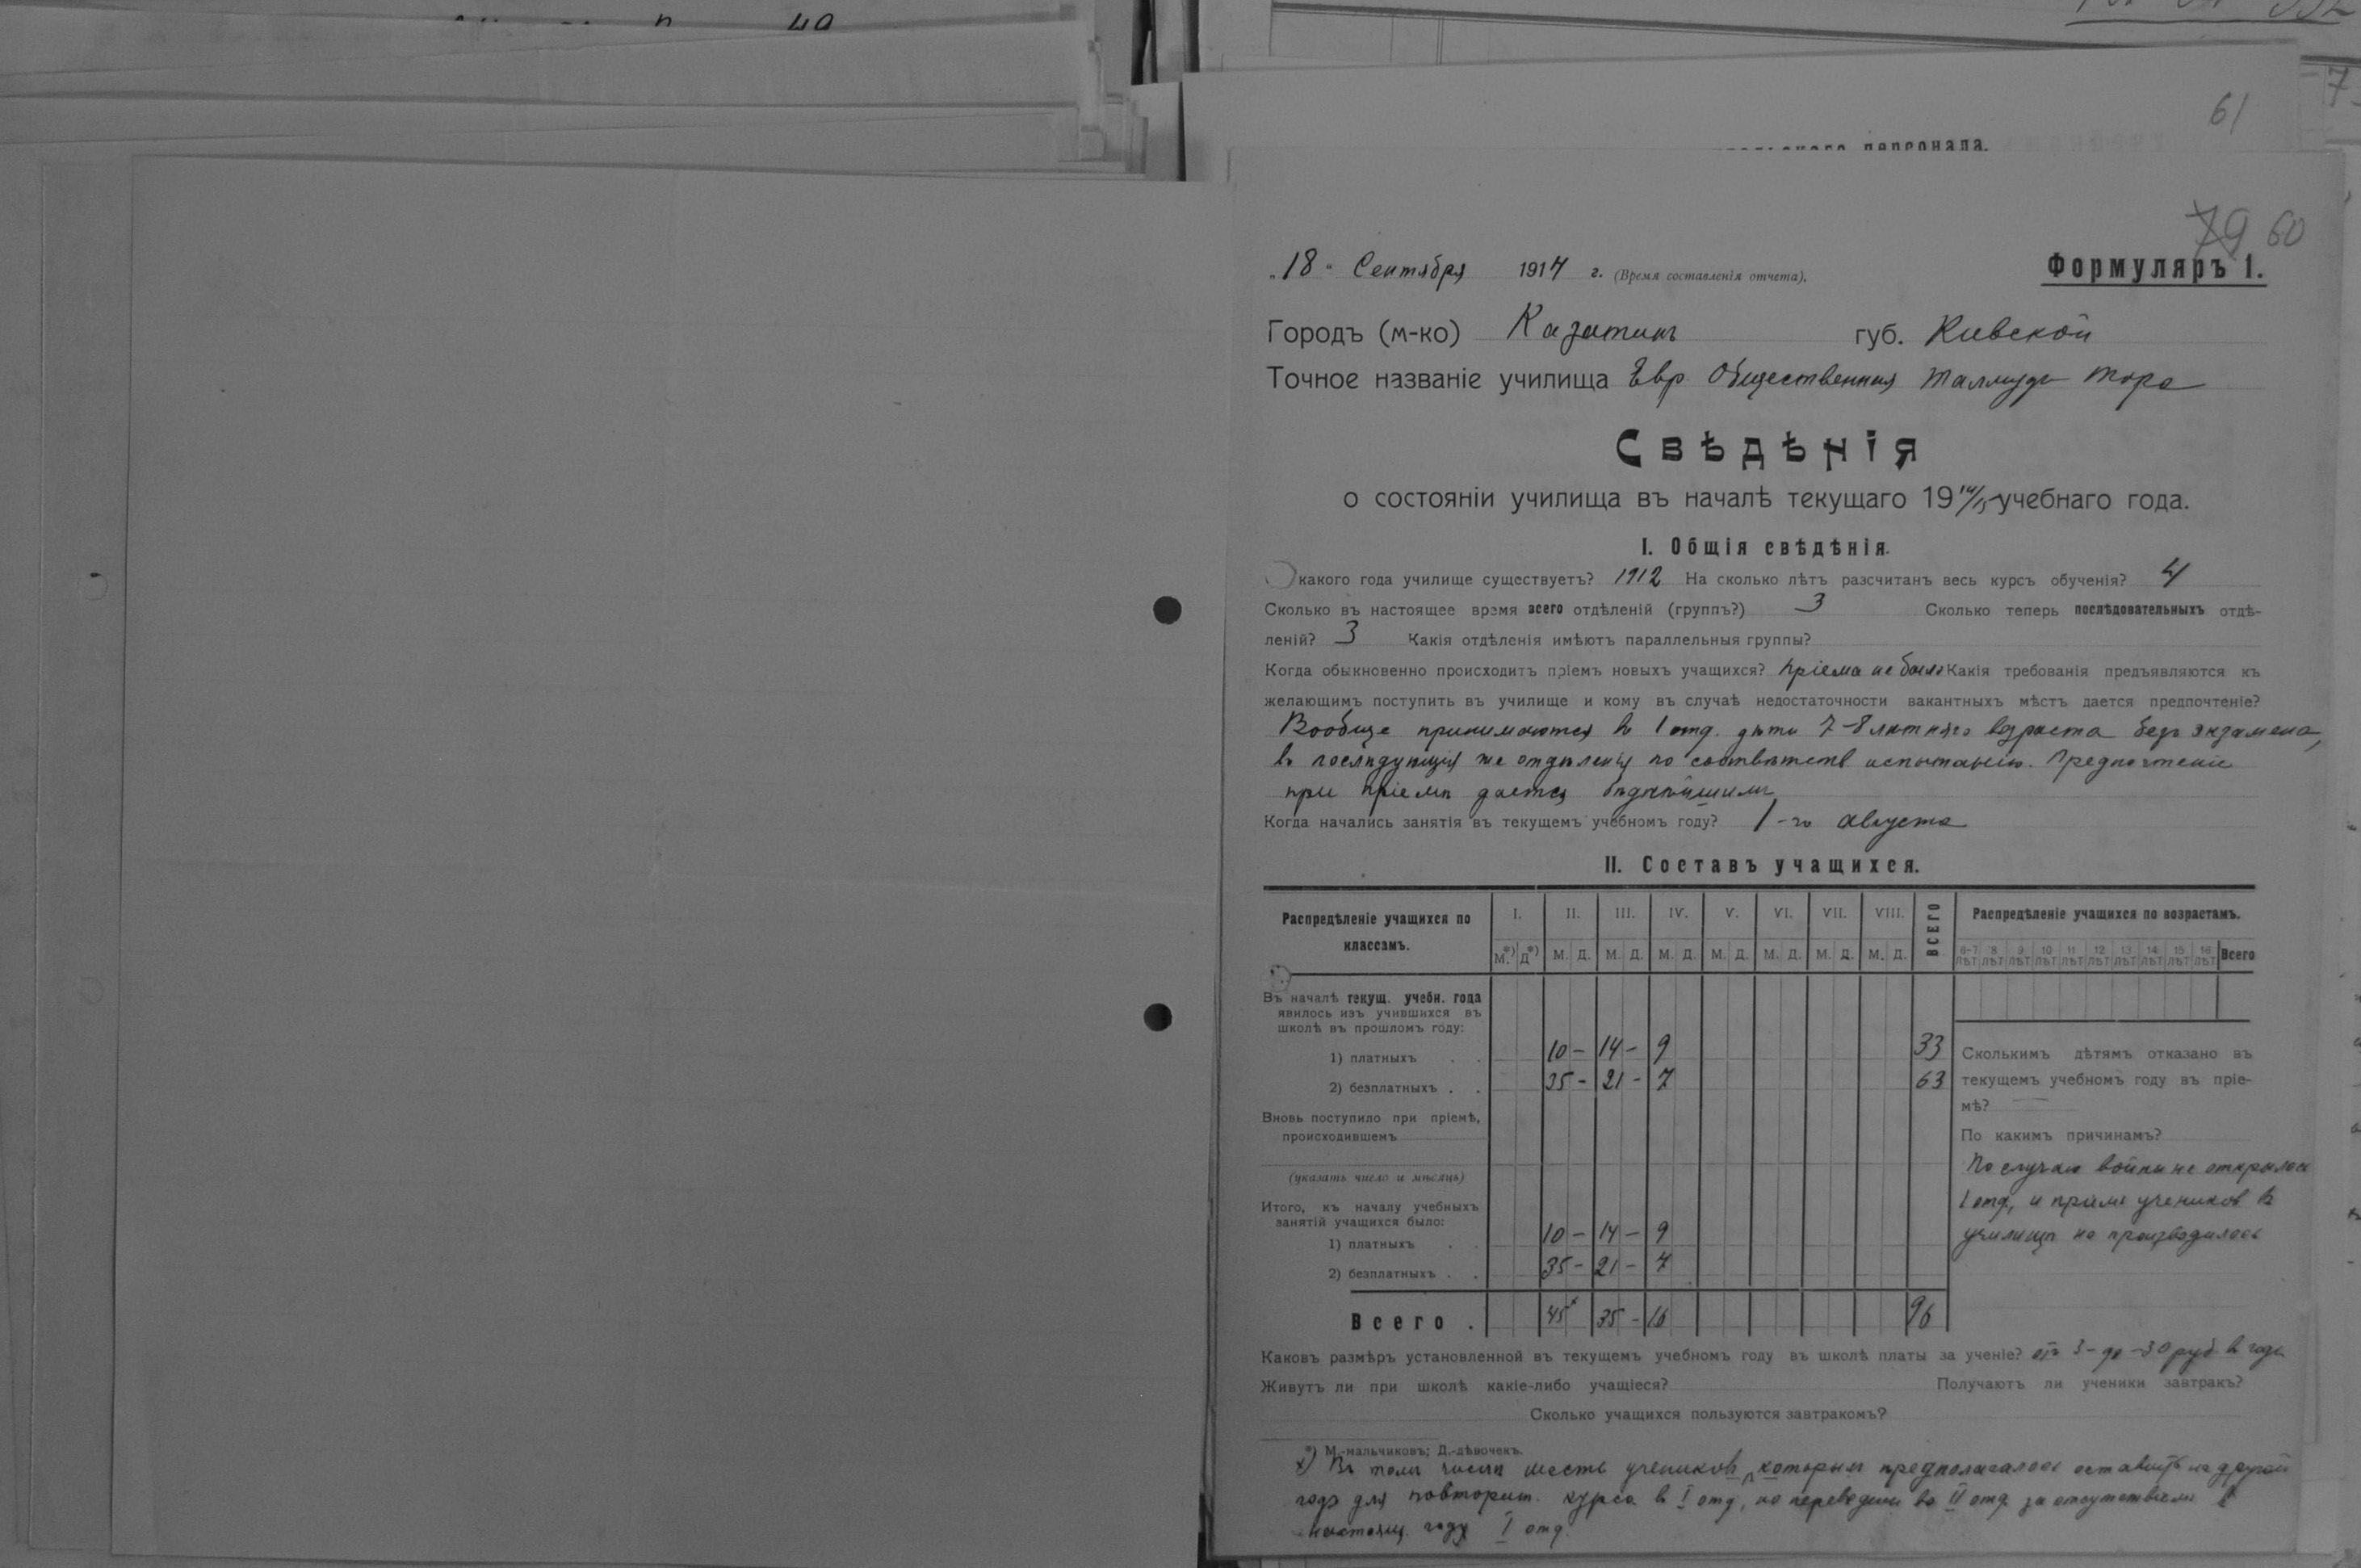 61
79 60
"18" Сентября 1914 г. (Время составленія отчета).
Формуляръ 1.
Городъ (м-ко) Казатинъ губ. Киевской
Точное названіе училища Евр Общественная Талмудъ Тора
Свѣдѣнія
о состояніи училища въ началѣ текущаго 1914/15 учебнаго года.
I. Общія свѣдѣнія.
какого года училище существуетъ? 1912 На сколько лѣтъ разсчитанъ весь курсъ обученія? 4
Сколько въ настоящее время всего отдѣленій (группъ?) 3 Сколько теперь послѣдовательныхъ отдѣ-
леній? 3 Какія отдѣленія имѣютъ параллельныя группы?
Когда обыкновенно происходитъ пріемъ новыхъ учащихся? Пріема не было Какія требованія предъявляются къ
желающимъ поступить въ училище и кому въ случаѣ недостаточности вакантныхъ мѣстъ дается предпочтеніе?
Вообще принимаются в 1 отд. дѣти 7-8 лѣтняго возраста безъ экзамена,
въ послѣдующія же отдѣленія по соотвѣтств испытанію. Предпочтеніе
при пріемѣ дается бѣднѣйшимъ
Когда начались занятія въ текущемъ учебномъ году? 1-го августа
II. Составъ учащихся.
Распредѣленіе учащихся по классамъ. I. II. III. IV. V. VI. VII. VIII. ВСЕГО Распредѣленіе учащихся по возрастамъ.
М.*) Д*) М. Д. М. Д. М. Д. М. Д. М. Д. М. Д. М. Д. 6-7 лѣт 8 лѣт 9 лѣт 10 лѣт 11 лѣт 12 лѣт 13 лѣт 14 лѣт 15 лѣт 16 лѣт Всего
Въ началѣ текущ. учебн. года
явилось изъ учившихся въ
школѣ въ прошломъ году:
1) платныхъ . . 10 - 14 - 9 33
2) безплатныхъ . . 35 - 21 - 7 63
Вновь поступило при пріемѣ,
происходившемъ
(указать число и мѣсяцъ)
Итого, къ началу учебныхъ
занятій учащихся было:
1) платныхъ . . 10 - 14 - 9
2) безплатныхъ . . 35 - 21 - 7
Всего . 45x 35 - 16 96
Сколькимъ дѣтямъ отказано въ
текущемъ учебномъ году въ пріе-
мѣ? —
По какимъ причинамъ?
По случаю войны не открылось
1 отд, и пріема учениковъ въ
училищѣ не производилось
Каковъ размѣръ установленной въ текущемъ учебномъ году въ школѣ платы за ученіе? отъ 3- до -30 руб. в годъ
Живутъ ли при школѣ какіе-либо учащіеся? Получаютъ ли ученики завтракъ?
Сколько учащихся пользуются завтракомъ?
*) М.-мальчиковъ; Д.-дѣвочекъ.
x) Въ томъ числѣ шесть учениковъ, которыхъ предполагалось оставить на другой
годъ для повторит. курса в I отд, но переведены во II отд. за отсутствіемъ в
настоящ. году I отд.